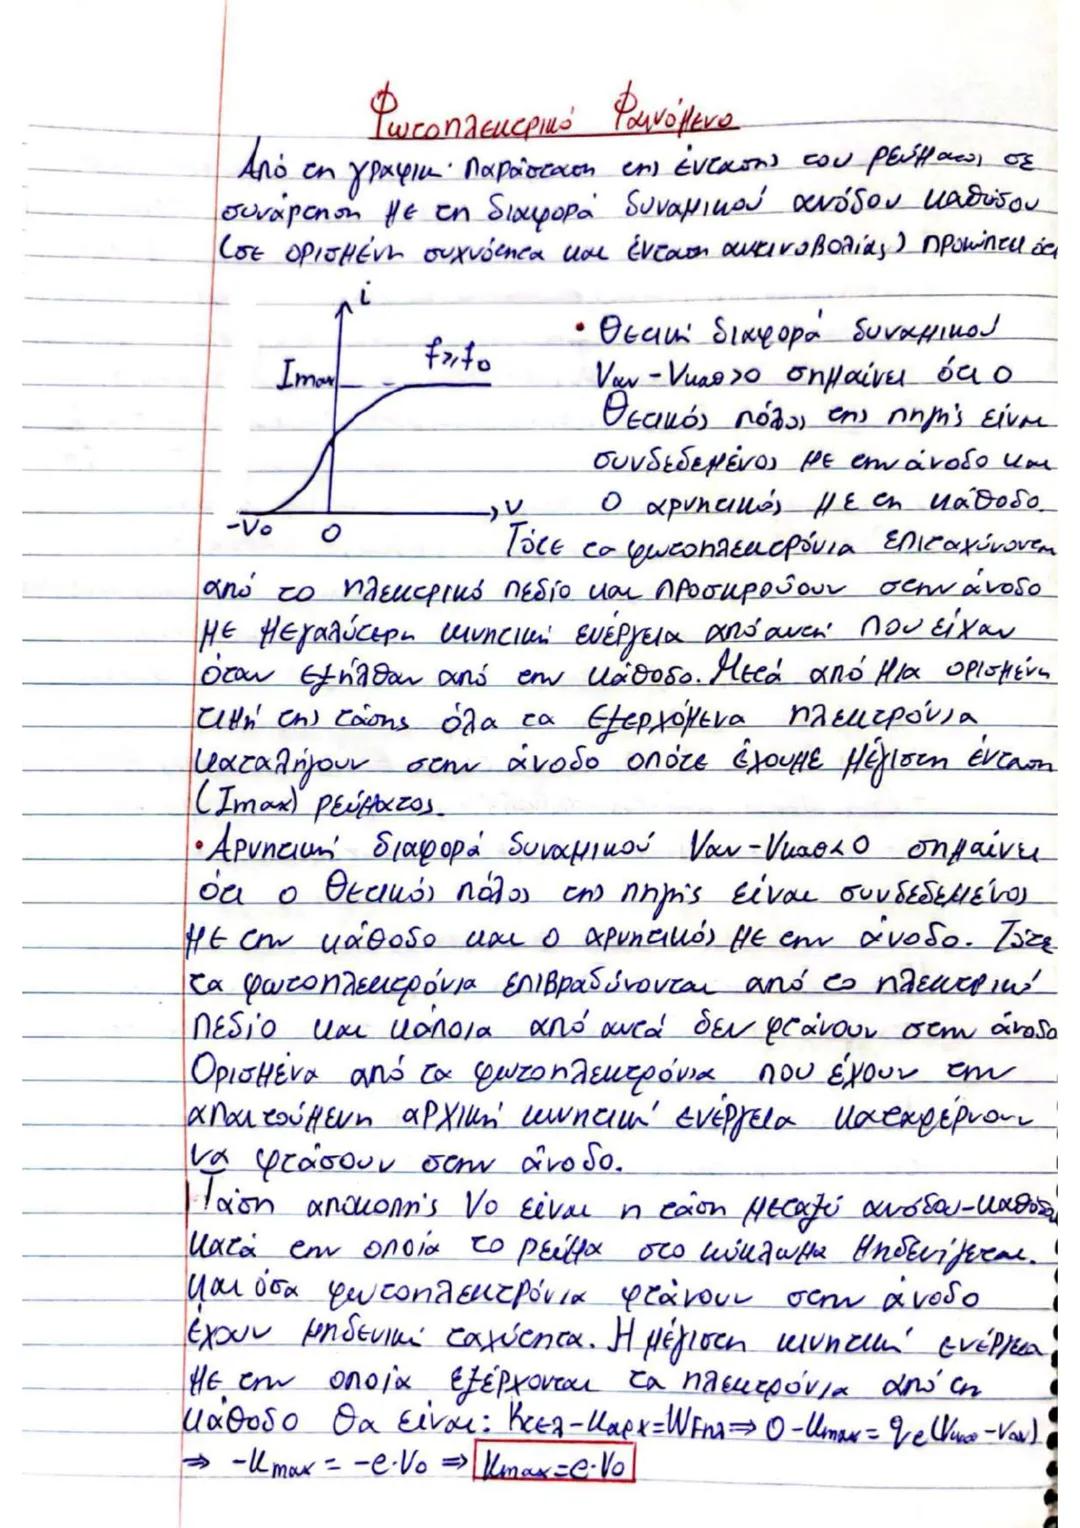 Φωτοηλεκτρικό Φαινόμενο
Από τη γραφικ. παράσταση της έντασης του ρεύματος σε
συνάρτηση με τη διαφορά δυναμικού ανόδου καθόδου
(σε ορισμένη συχνότητα και ένταση ακτινοβολίας) προκύπτει ότι
i
Imax
f≥f₀
-V₀
0
V
• Θετική διαφορά δυναμικού
Vαν-Vκαθ>0 σημαίνει ότι ο
Θετικός πόλος της πηγής είναι
συνδεδεμένος με την άνοδο και
ο αρνητικός με τη κάθοδο.
Τότε τα φωτοηλεκτρόνια επιταχύνονται
από το ηλεκτρικό πεδίο και προσκρούουν στην άνοδο
με μεγαλύτερη κινητική ενέργεια από αυτή που είχαν
όταν εξήλθαν από την κάθοδο. Μετά από μια ορισμένη
τιμή της τάσης όλα τα εξερχόμενα ηλεκτρόνια
καταλήγουν στην άνοδο οπότε έχουμε μέγιστη ένταση
(Imax) ρεύματος.
• Αρνητική διαφορά δυναμικού Vαν-Vκαθ<0 σημαίνει
ότι ο Θετικός πόλος της πηγής είναι συνδεδεμένος
με την κάθοδο και ο αρνητικός με την άνοδο. Τότε
τα φωτοηλεκτρόνια επιβραδύνονται από το ηλεκτρικό
πεδίο και κάποια από αυτά δεν φτάνουν στην άνοδο
Ορισμένα από τα φωτοηλεκτρόνια που έχουν την
απαιτούμενη αρχική κινητική ενέργεια καταφέρνουν
να φτάσουν στην άνοδο.
Τάση αποκοπής V₀ είναι η τάση μεταξύ ανόδου-καθόδου
κατά την οποία το ρεύμα στο κύκλωμα μηδενίζεται.
και όσα φωτοηλεκτρόνια φτάνουν στην άνοδο
έχουν μηδενική ταχύτητα. Η μέγιστη κινητική ενέργεια
με την οποία εξέρχονται τα ηλεκτρόνια από τη
κάθοδο θα είναι: Κτελ-Καρχ=WFηλ⇒ 0-Κmax= qe(Vκαθ-Vαν)
⇒ -Κmax = -e·V₀ ⇒ Κmax=e·V₀